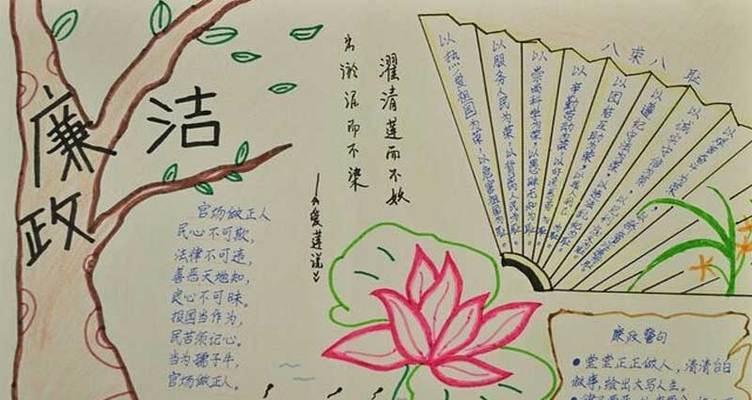 廉洁
政
出淤泥而不染
濯清莲而不妖
——《爱莲说》
八荣八耻
以热爱祖国为荣,以危害祖国为耻。
以服务人民为荣,以背离人民为耻。
以崇尚科学为荣,以愚昧无知为耻。
以辛勤劳动为荣,以好逸恶劳为耻。
以团结互助为荣,
以遵纪守法为荣,
以诚实守信为荣,
以艰苦奋斗为荣,
官场做正人
民心不可欺,
法律不可违,
善恶天地知,
良心不可昧.
祖国当作为,
民苦须记心.
当为孺子牛,
官场做正人.
廉政警句
●堂堂正正做人,清清白白
做事,绘出大写人生。